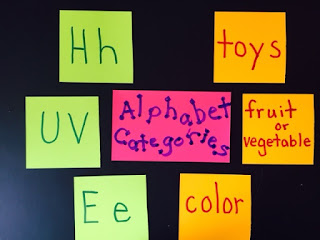 Hh
toys
UV
Alphabet
Categories
fruit
or
vegetable
Ee
color